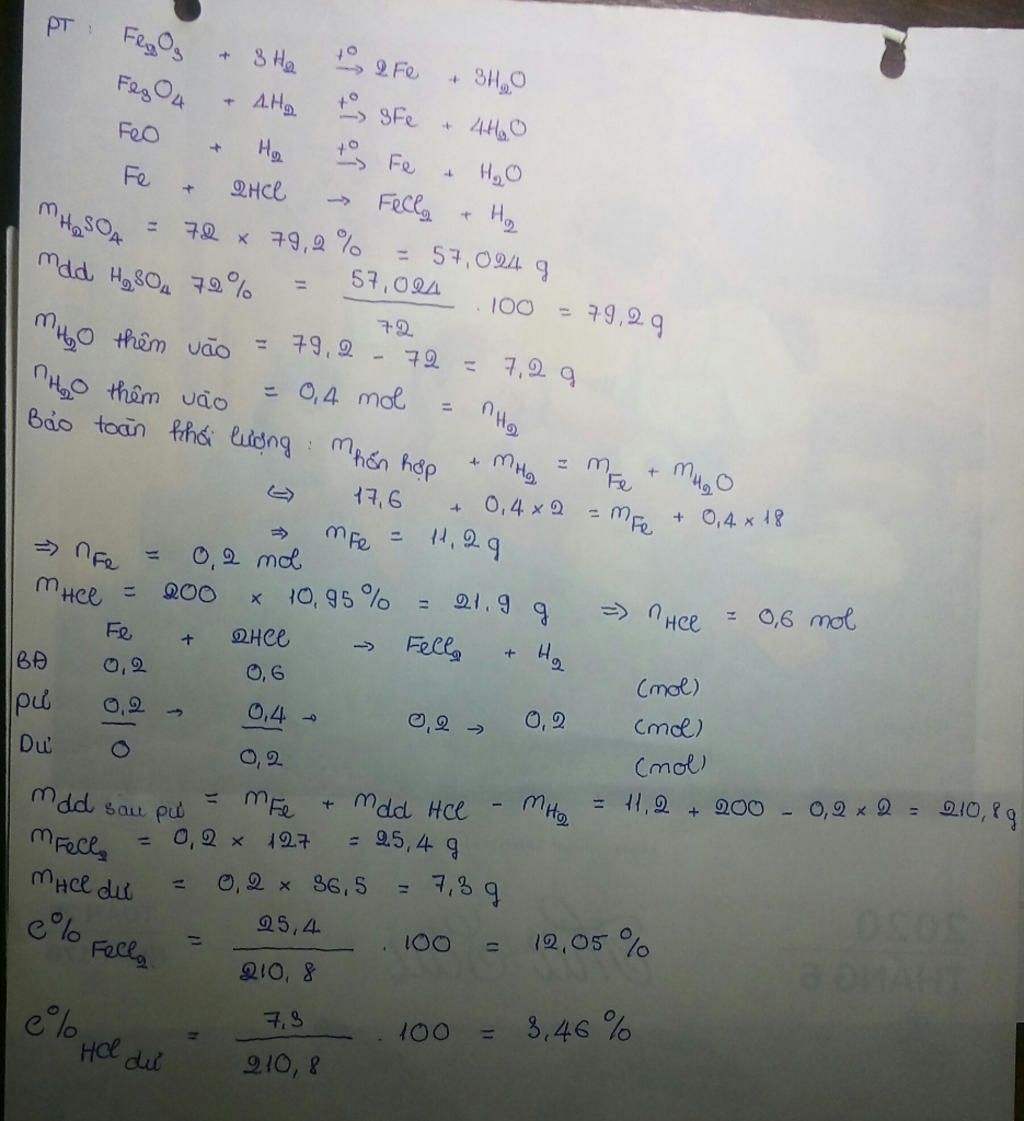 PT : Fe₂O₃ + 3H₂ →(t°) 2Fe + 3H₂O
Fe₃O₄ + 4H₂ →(t°) 3Fe + 4H₂O
FeO + H₂ →(t°) Fe + H₂O
Fe + 2HCl → FeCl₂ + H₂
m H₂SO₄ = 72 × 79,2% = 57,024 g
mdd H₂SO₄ 72% = 57,024/72 . 100 = 79,2 g
m H₂O thêm vào = 79,2 - 72 = 7,2 g
n H₂O thêm vào = 0,4 mol = n H₂
Bảo toàn khối lượng : m hỗn hợp + m H₂ = m Fe + m H₂O
⇔ 17,6 + 0,4 × 2 = m Fe + 0,4 × 18
⇒ m Fe = 11,2 g
⇒ n Fe = 0,2 mol
m HCl = 200 × 10,95% = 21,9 g ⇒ n HCl = 0,6 mol
Fe + 2HCl → FeCl₂ + H₂
BĐ 0,2 0,6 (mol)
PƯ 0,2 → 0,4 → 0,2 → 0,2 (mol)
Dư 0 0,2 (mol)
mdd sau pư = m Fe + mdd HCl - m H₂ = 11,2 + 200 - 0,2 × 2 = 210,8 g
m FeCl₂ = 0,2 × 127 = 25,4 g
m HCl dư = 0,2 × 36,5 = 7,3 g
C% FeCl₂ = 25,4/210,8 . 100 = 12,05 %
C% HCl dư = 7,3/210,8 . 100 = 3,46 %
2020
THÁNG 6